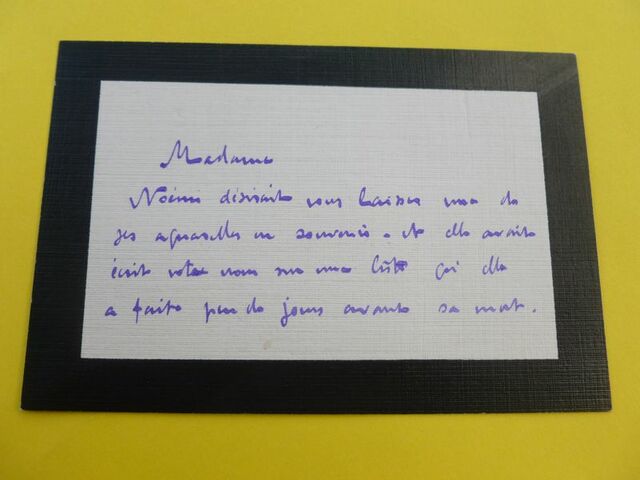 Madame
Noémi désirait vous laisser une de
ses aquarelles en souvenir. et elle avait
écrit votre nom sur une liste qu'elle
a faite peu de jours avant sa mort.